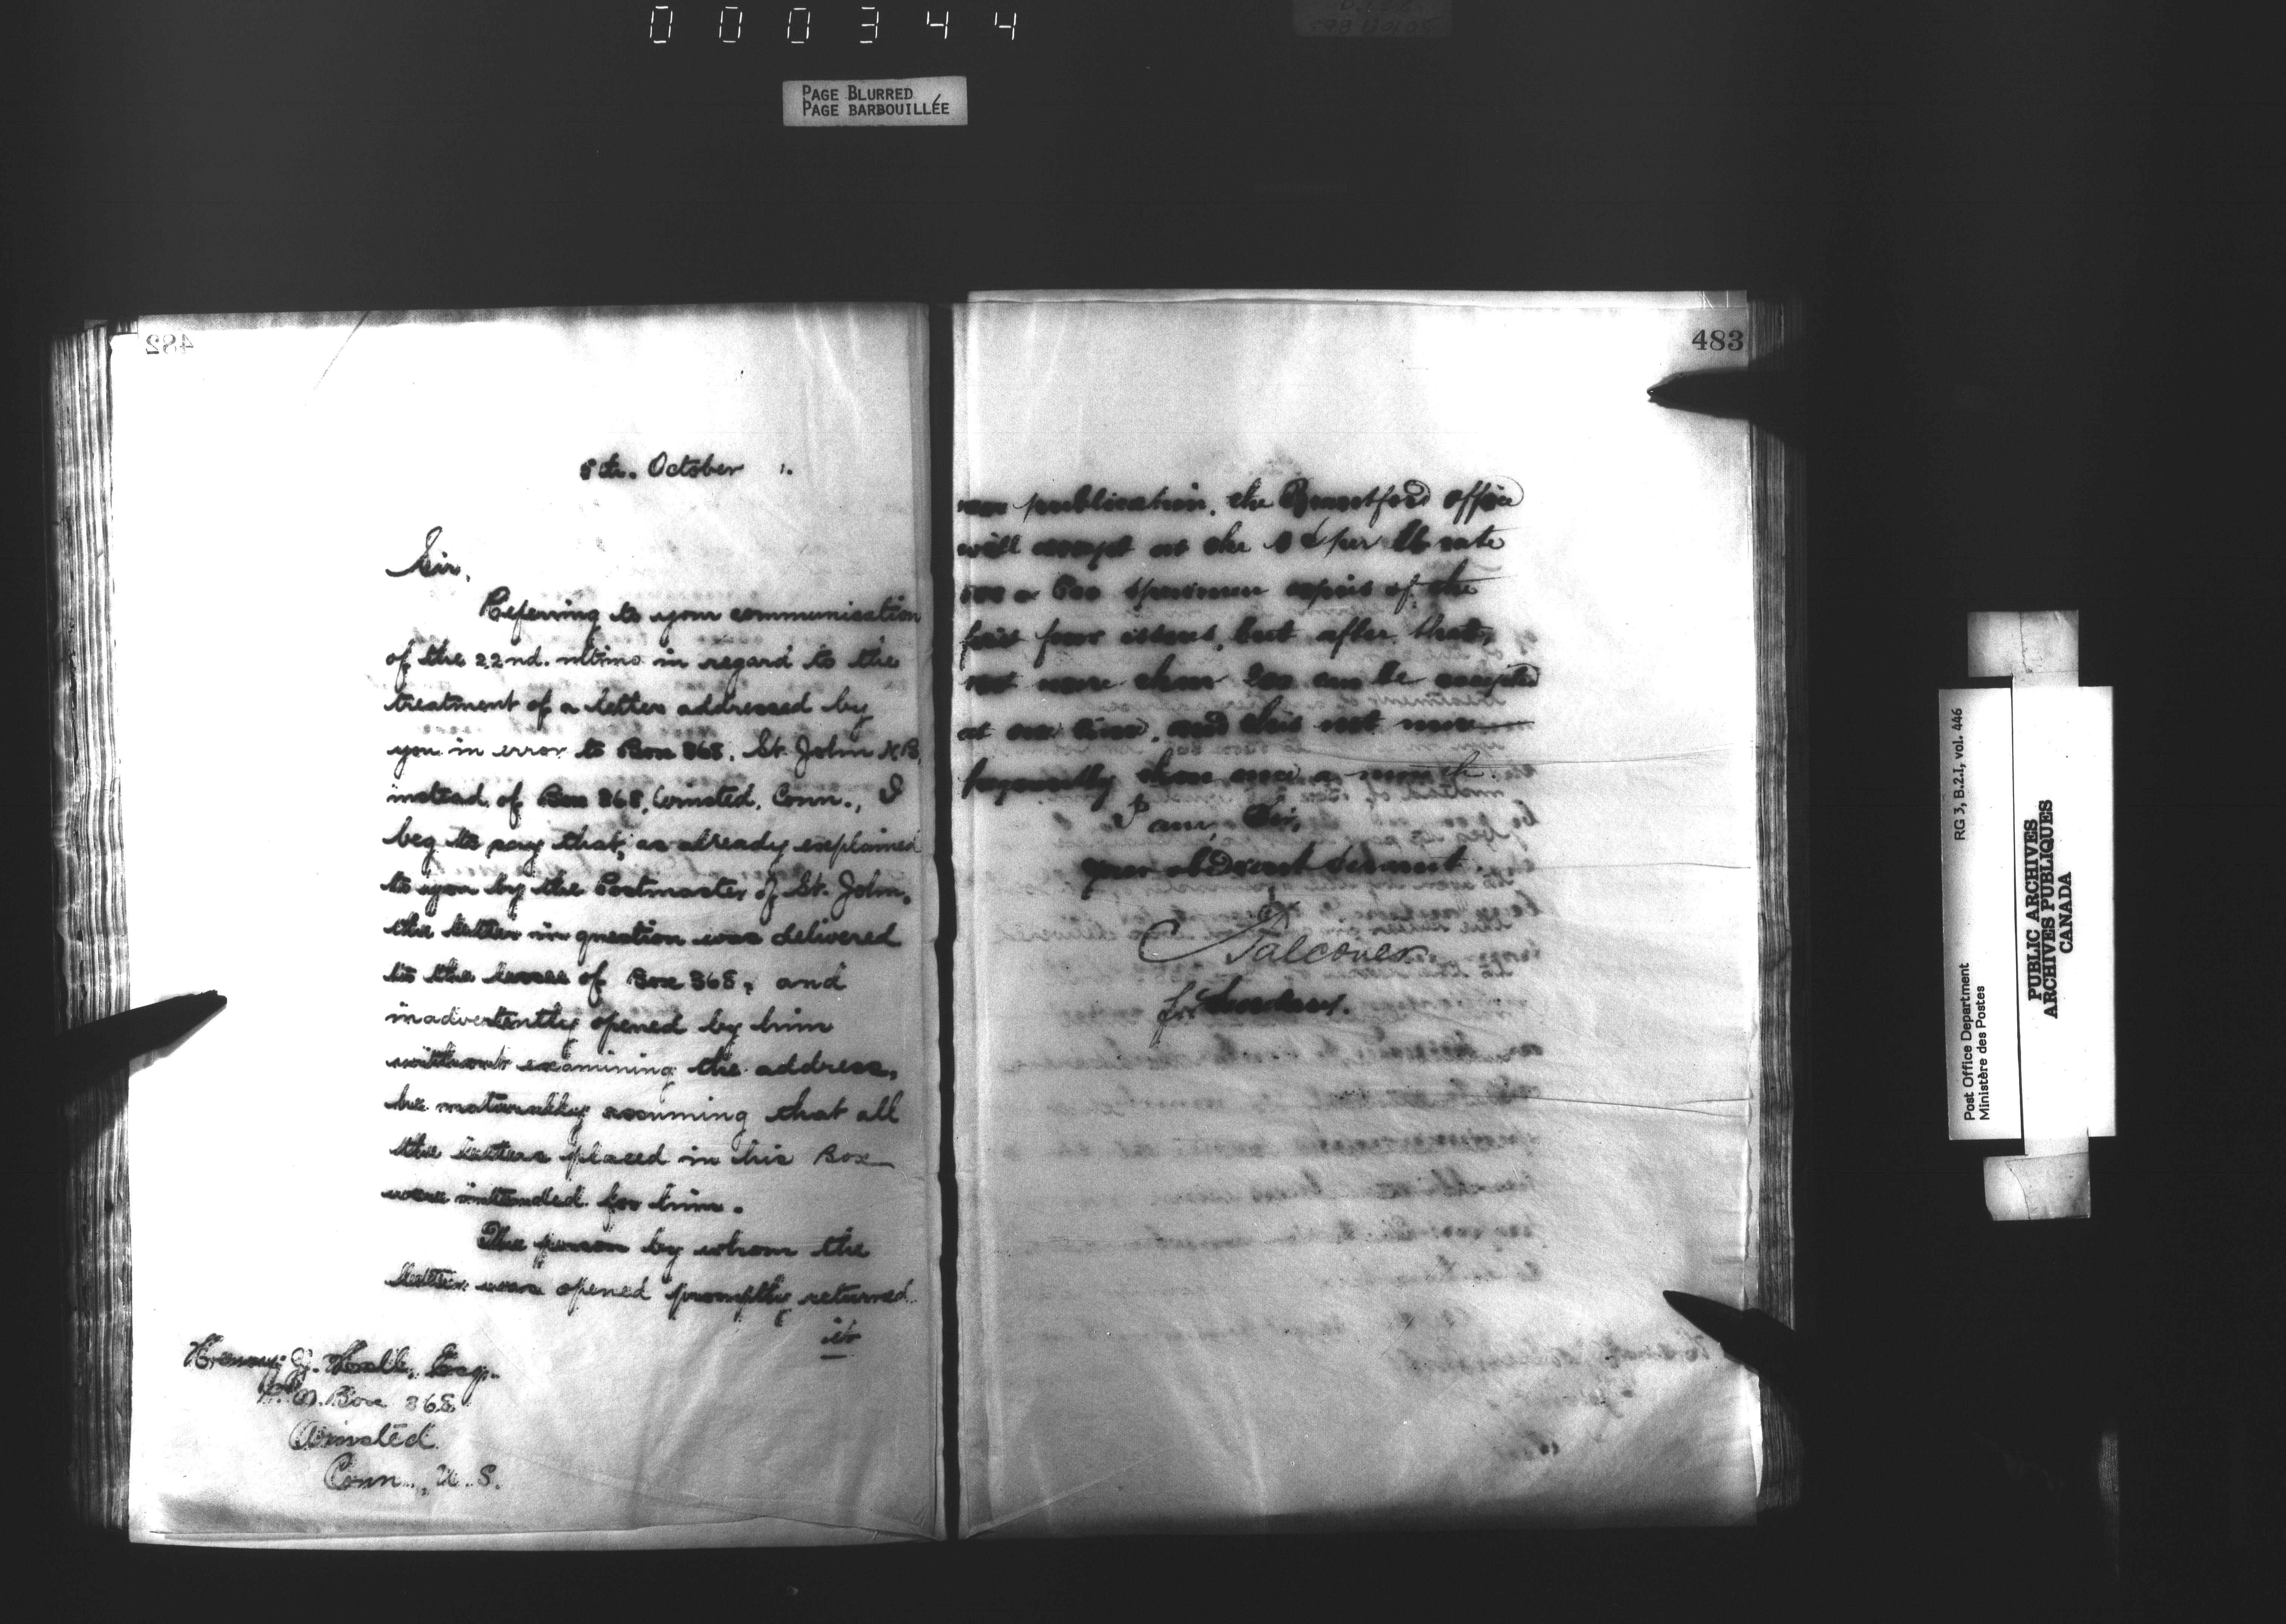 000344
PAGE BLURRED
PAGE BARBOUILLÉE
482
8th. October
Sir,
Referring to your communication
of the 22nd. ultimo in regard to the
treatment of a letter addressed by
you in error to Box 368, St. John N.B.
instead of Box 368, Winsted, Conn., I
beg to say that, as already explained
to you by the Postmaster of St. John,
the letter in question was delivered
to the lessee of Box 368, and
inadvertently opened by him
without examining the address,
he naturally assuming that all
the letters placed in his Box
were intended for him.
The person by whom the
letter was opened promptly returned
it
Esq.
P.O. Box 368
Winsted
Conn., U.S.
483
publication, the Brantford office
will accept at the ¢ per lb rate
500 or 600 specimen copies of the
first four issues, but after that,
not more than 200 can be accepted
at one time, and this not more
frequently than once a month.
I am, Sir,
your obedient servant
Falconer
for Secretary.
Post Office Department
Ministère des Postes
RG 3, B.2.I, vol. 446
PUBLIC ARCHIVES
ARCHIVES PUBLIQUES
CANADA